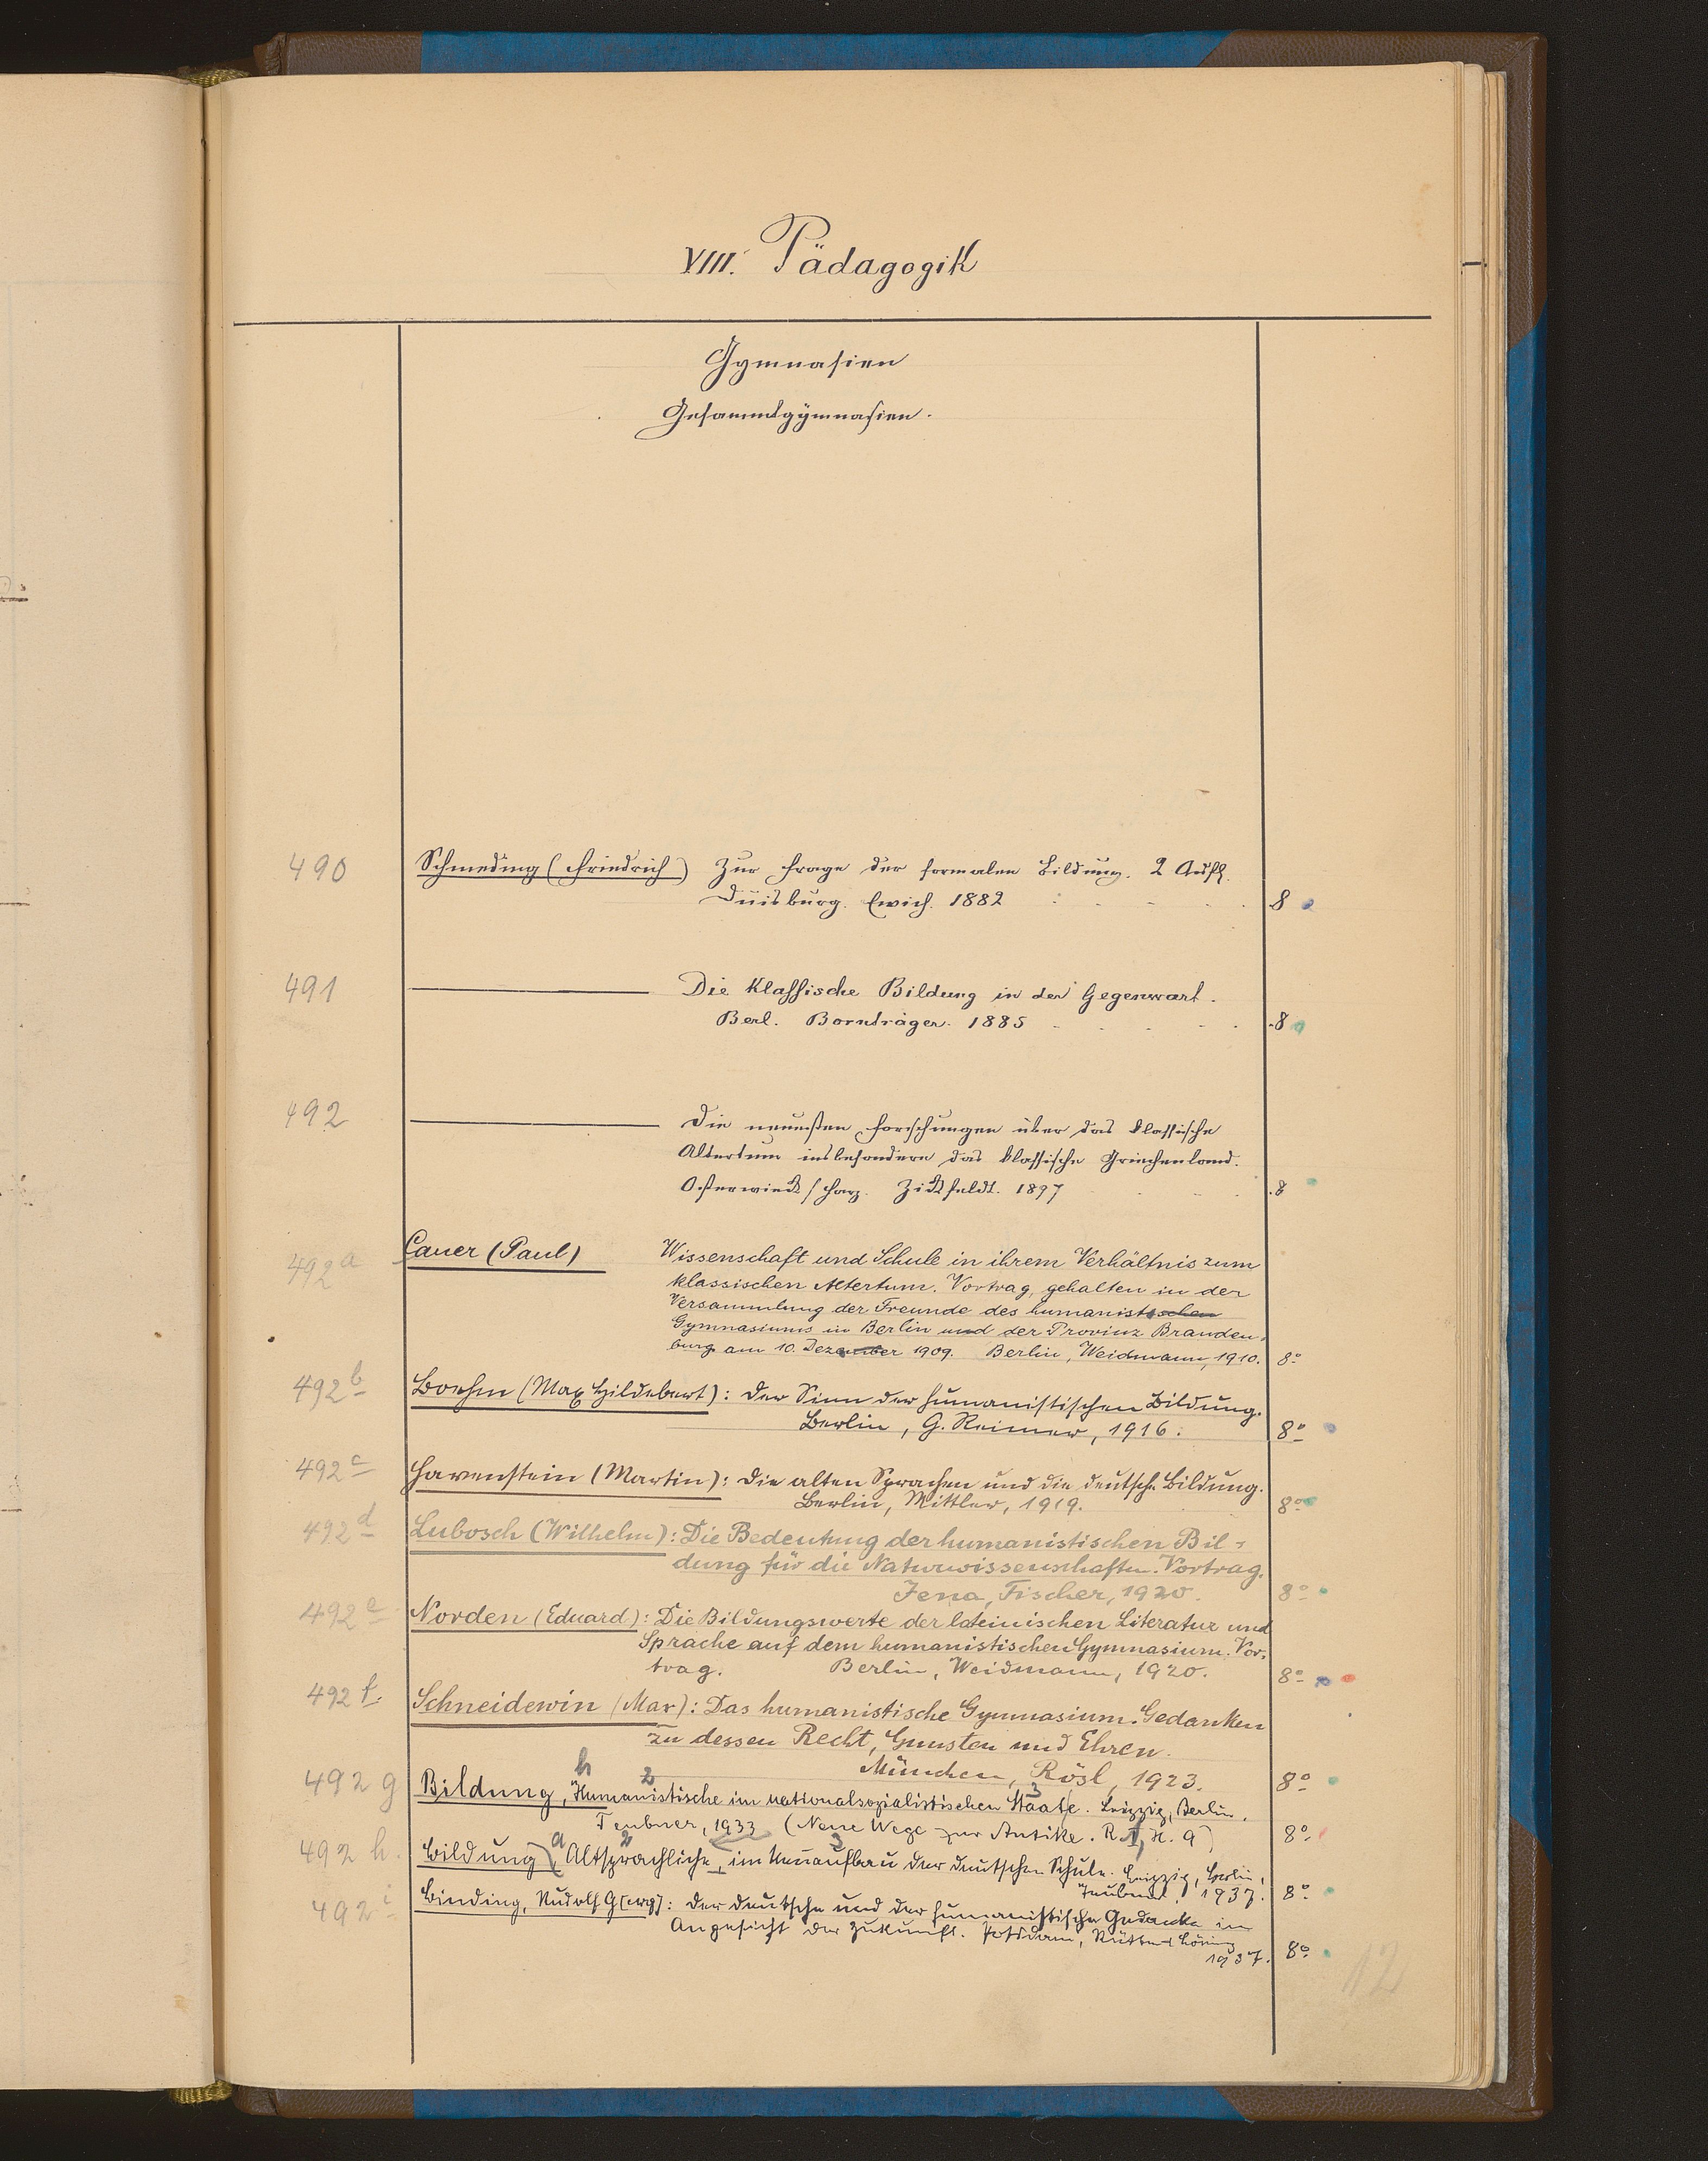 VIII. Pädagogik
Gymnasien
Gesammtgymnasien.
490 Schmeding (Friedrich) Zur Frage der formalen Bildung. 2 Aufl.
Duisburg. Ewich. 1882 8
491 Die Klassische Bildung in der Gegenwart.
Berl. Bornträger. 1885 8
492 Die neuesten Forschungen über das klassische
Altertum insbesondere das klassische Griechenland.
Osterwieck/Harz. Zickfeldt. 1897 8
492a Cauer (Paul) Wissenschaft und Schule in ihrem Verhältnis zum
klassischen Altertum. Vortrag, gehalten in der
Versammlung der Freunde des humanistischen
Gymnasiums in Berlin und der Provinz Branden-
burg am 10. Dezember 1909. Berlin, Weidmann, 1910. 8°
492b Boehm (Max Hildebert): Der Sinn der humanistischen Bildung.
Berlin, G. Reimer, 1916. 8°
492c Havenstein (Martin): Die alten Sprachen und die deutsche Bildung.
Berlin, Mittler, 1919. 8°
492d Lubosch (Wilhelm): Die Bedeutung der humanistischen Bil-
dung für die Naturwissenschaften. Vortrag.
Jena, Fischer, 1920. 8°
492e Norden (Eduard): Die Bildungswerte der lateinischen Literatur und
Sprache auf dem humanistischen Gymnasium. Vor-
trag. Berlin, Weidmann, 1920. 8°
492f. Schneidewin (Max): Das humanistische Gymnasium. Gedanken
zu dessen Recht, Gunsten und Ehren.
München, Rösl, 1923. 8°
h 2 3
492g Bildung, Humanistische im nationalsozialistischen Staate. Leipzig, Berlin,
Teubner, 1933 (Neue Wege zur Antike. R. I, H. 9) 8°
a 2 3
492h. Bildung, Altsprachliche, im Neuaufbau der deutschen Schule. Leipzig, Berlin,
Teubner, 1937. 8°
492i Binding, Rudolf G[eorg]: Der deutsche und der humanistische Gedanke im
Angesicht der Zukunft. Potsdam, Rütten & Löning
1937. 8°
12